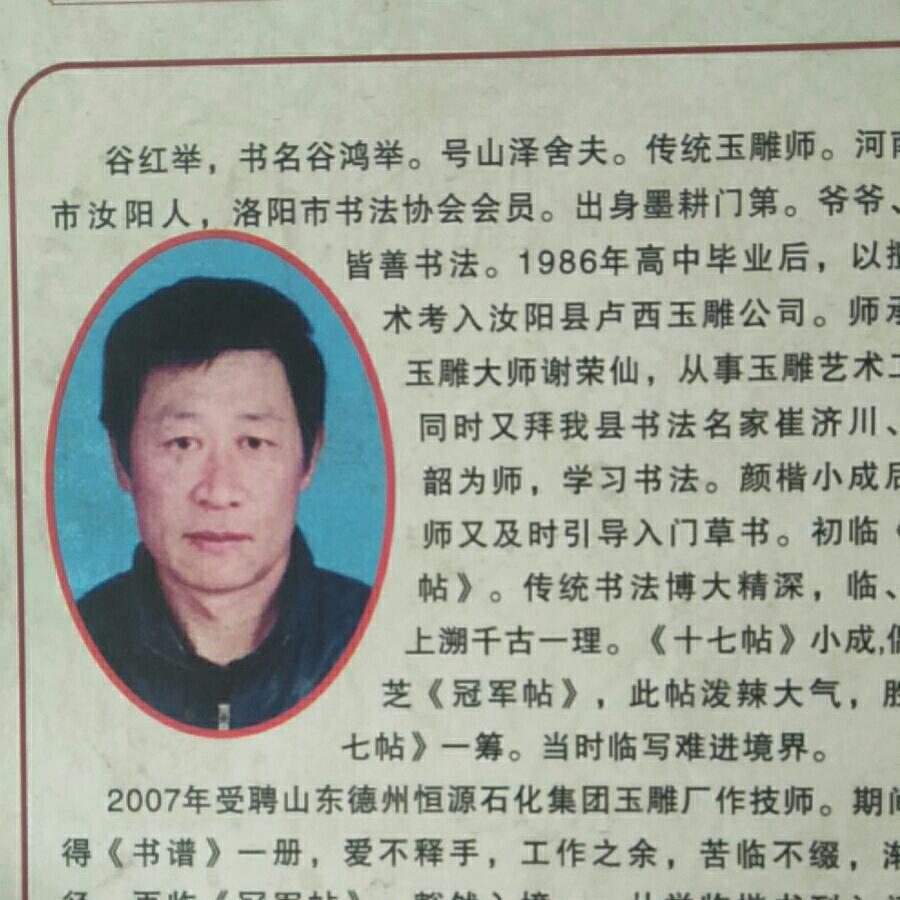 谷红举，书名谷鸿举。号山泽舍夫。传统玉雕师。河南
市汝阳人，洛阳市书法协会会员。出身墨耕门第。爷爷、
皆善书法。1986年高中毕业后，以
术考入汝阳县卢西玉雕公司。师承
玉雕大师谢荣仙，从事玉雕艺术工
同时又拜我县书法名家崔济川、
韶为师，学习书法。颜楷小成后
师又及时引导入门草书。初临《
帖》。传统书法博大精深，临、
上溯千古一理。《十七帖》小成,偶
芝《冠军帖》，此帖泼辣大气，胜
七帖》一筹。当时临写难进境界。
2007年受聘山东德州恒源石化集团玉雕厂作技师。期间
得《书谱》一册，爱不释手，工作之余，苦临不缀，渐
再临《冠军帖》